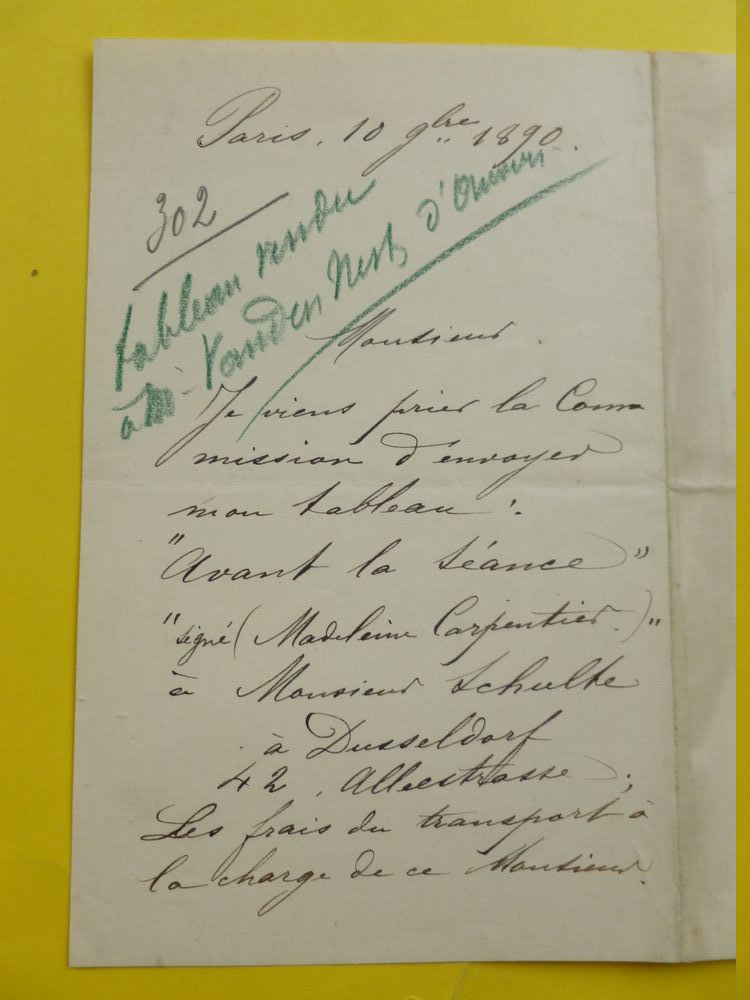 Paris, 10 9bre 1890.
302
tableau rendu
à Mr Vanden Nest d'Anvers
Monsieur.
Je viens prier la Com
mission d'envoyer
mon tableau :
"Avant la Séance"
"signé (Madeleine Carpentier.)"
à Monsieur Schulte
à Dusseldorf
42, Alleestrasse ;
Les frais du transport à
la charge de ce Monsieur.